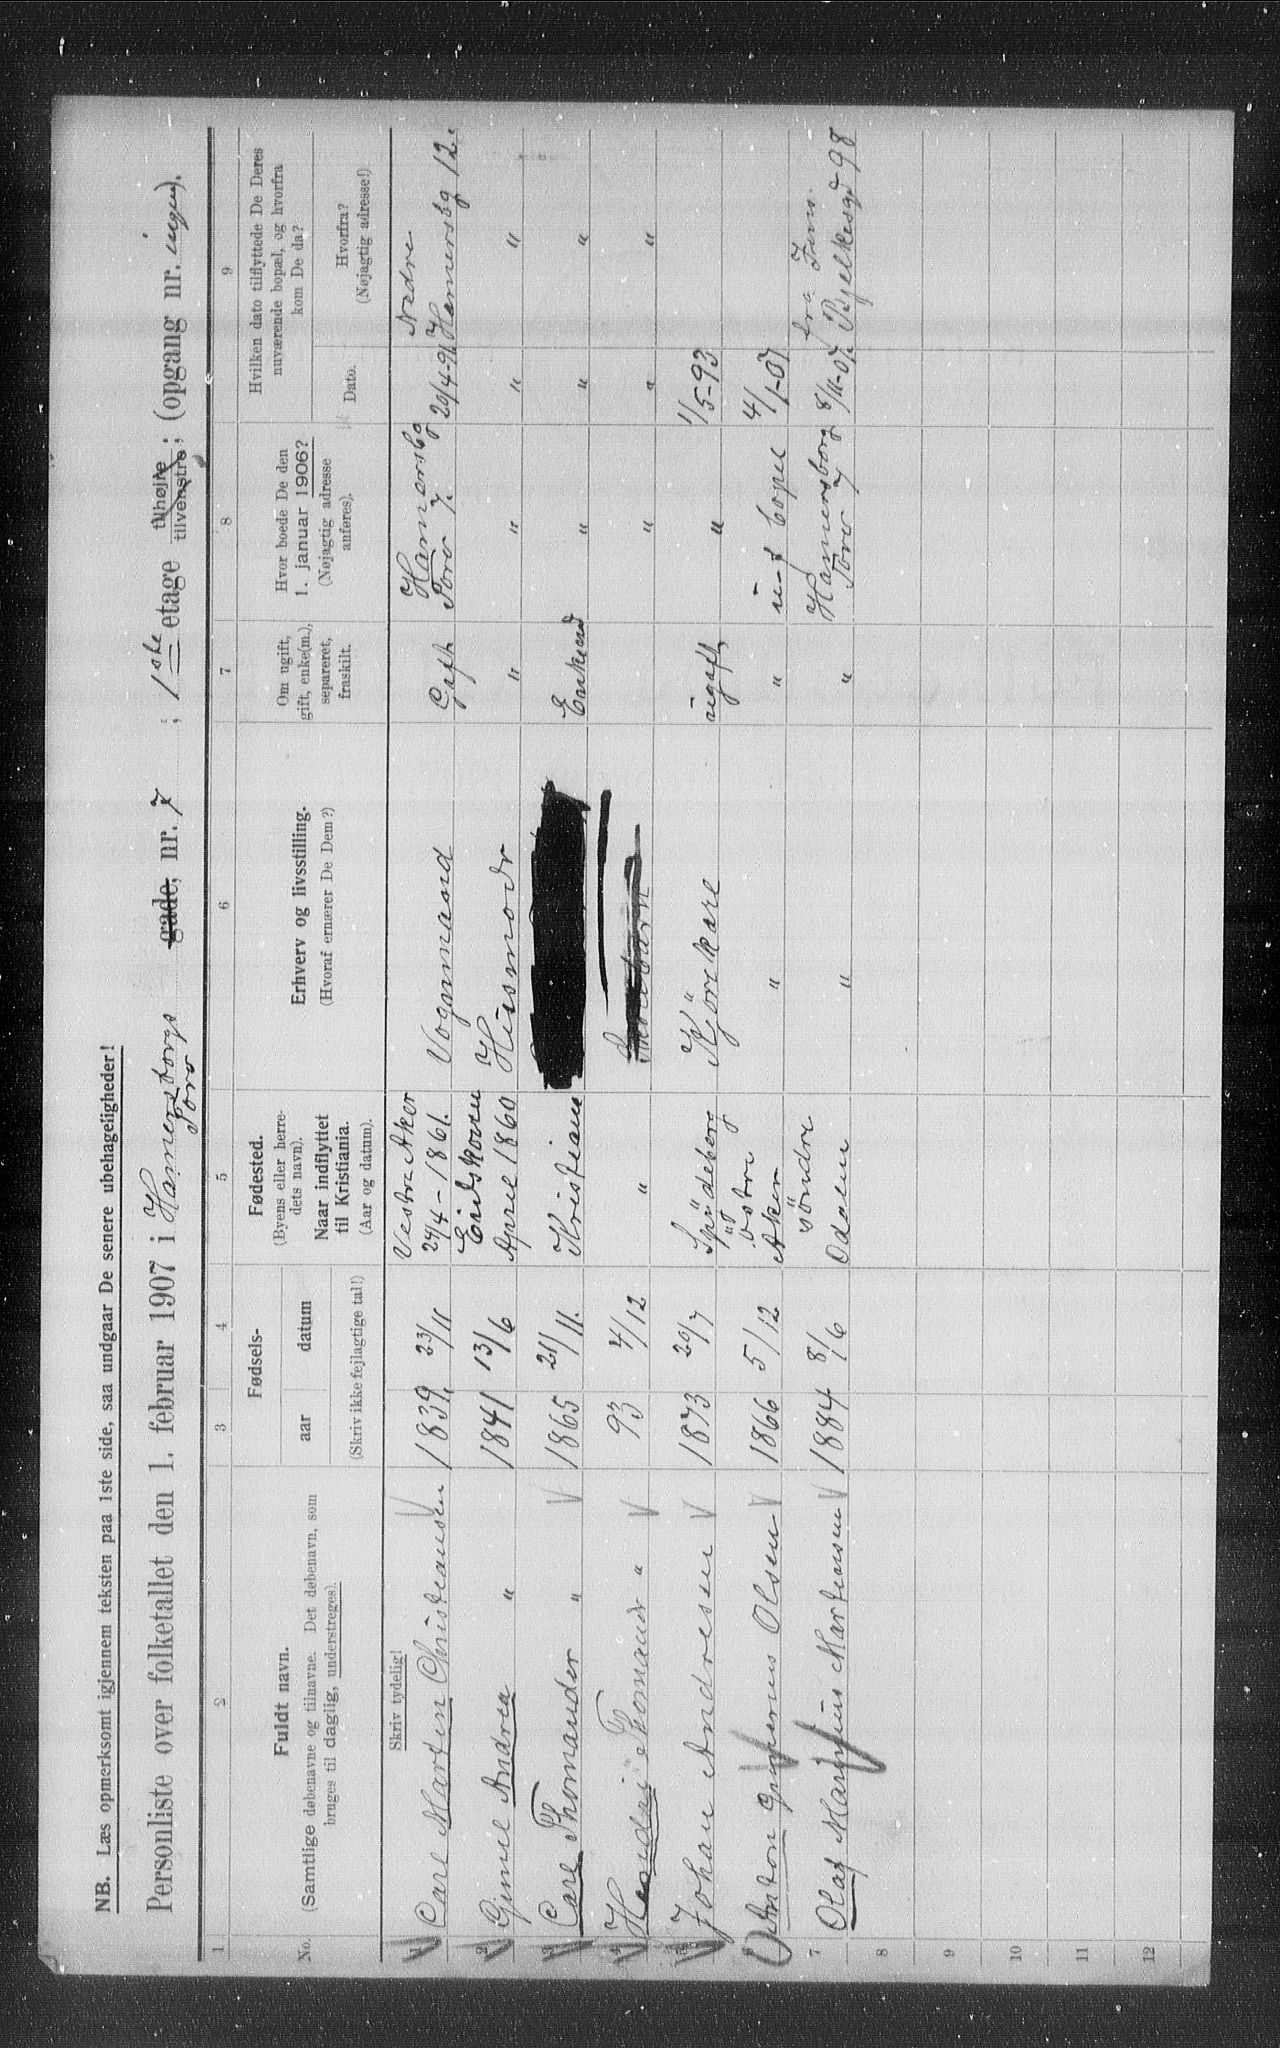 NB. Læs opmerksomt igjennem teksten paa 1ste side, saa undgaar De senere ubehageligheder!
Personliste over folketallet den 1. februar 1907 i Hammersborgs Torv gade, nr. 7 ; 1ste etage tilhøjre tilvenstre ; (opgang nr. ingen).
1 2 3 4 5 6 7 8 9
No.
Fuldt navn.
(Samtlige døbenavne og tilnavne. Det døbenavn, som
bruges til daglig, understreges).
Fødsels-
aar datum
(Skriv ikke fejlagtige tal!)
Fødested.
(Byens eller herre-
dets navn).
Naar indflyttet
til Kristiania.
(Aar og datum).
Erhverv og livsstilling.
(Hvoraf ernærer De Dem?)
Om ugift,
gift, enke(m.),
separeret,
fraskilt.
Hvor boede De den
1. januar 1906?
(Nøjagtig adresse
anføres).
Hvilken dato tilflyttede De Deres
nuværende bopæl, og hvorfra
kom De da?
Dato.
Hvorfra?
(Nøjagtig adresse!)
Skriv tydelig!
1 Carl Martin Christiansen 1839 23/11 Vestre Aker 24/4-1861. Vognmand Gift Hammersbg Torv 7. 20/4-91 Nedre Hamersbg 12.
2 Andrea " 1841 13/6 Eidskoven April 1860 Husmodr " " " "
3 Carl Thomander " 1865 21/11. Kristiania Enkemd " " "
4 Thomandr " 93 4/12 " " " "
5 Johan Andresen 1873 20/7 Spydeberg Kjörekarl ugift " 1/5-93
6 Anton Olsen 1866 5/12 östre Aker " " bopel 4/1-07
7 Olaf Martensen 1884 8/6 söndre Odalen " " Hammersborg Torv 7 8/11-07 fra Jens Bjelkesgd 98
8
9
10
11
12